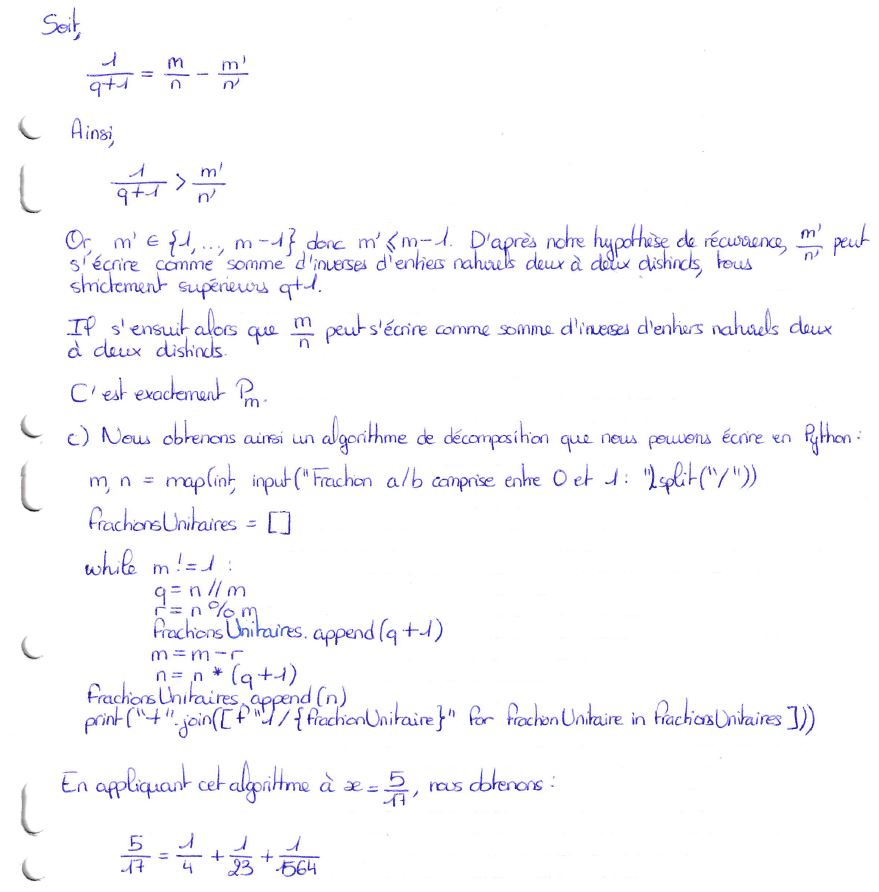 Soit,
1/(q+1) = m/n - m'/n'
Ainsi,
1/(q+1) > m'/n'
Or, m' ∈ {1, ..., m-1} donc m' ⩽ m-1. D'après notre hypothèse de récurrence, m'/n' peut
s'écrire comme somme d'inverses d'entiers naturels deux à deux distincts, tous
strictement supérieurs q+1.
Il s'ensuit alors que m/n peut s'écrire comme somme d'inverses d'entiers naturels deux
à deux distincts.
C'est exactement Pm.
c) Nous obtenons ainsi un algorithme de décomposition que nous pouvons écrire en Python :
m, n = map(int, input("Fraction a/b comprise entre 0 et 1 : ").split("/"))
fractionsUnitaires = []
while m != 1 :
q = n // m
r = n % m
fractionsUnitaires.append(q+1)
m = m - r
n = n * (q+1)
fractionsUnitaires.append(n)
print("+".join([f"1/{fractionUnitaire}" for fractionUnitaire in fractionsUnitaires]))
En appliquant cet algorithme à x = 5/17, nous obtenons :
5/17 = 1/4 + 1/23 + 1/1564